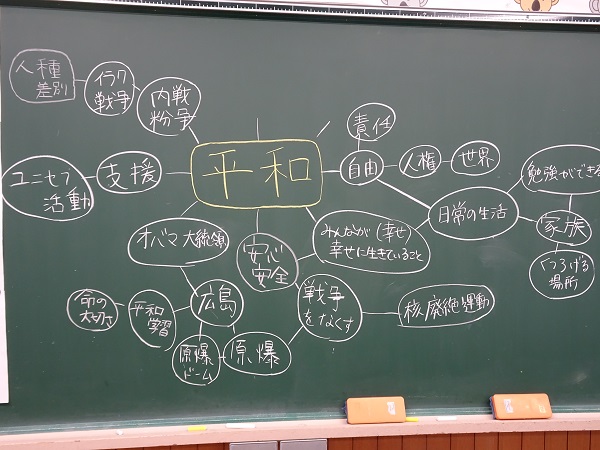 平和
人種
差別
イラク
戦争
内戦
粉争
責任
自由
人権
世界
勉強ができる
ユニセフ
活動
支援
日常の生活
家族
くつろげる
場所
オバマ大統領
安心
安全
みんなが(幸せ
幸せに生きていること
命の
大切さ
平和
学習
広島
戦争
をなくす
核廃絶運動
原爆
ドーム
原爆